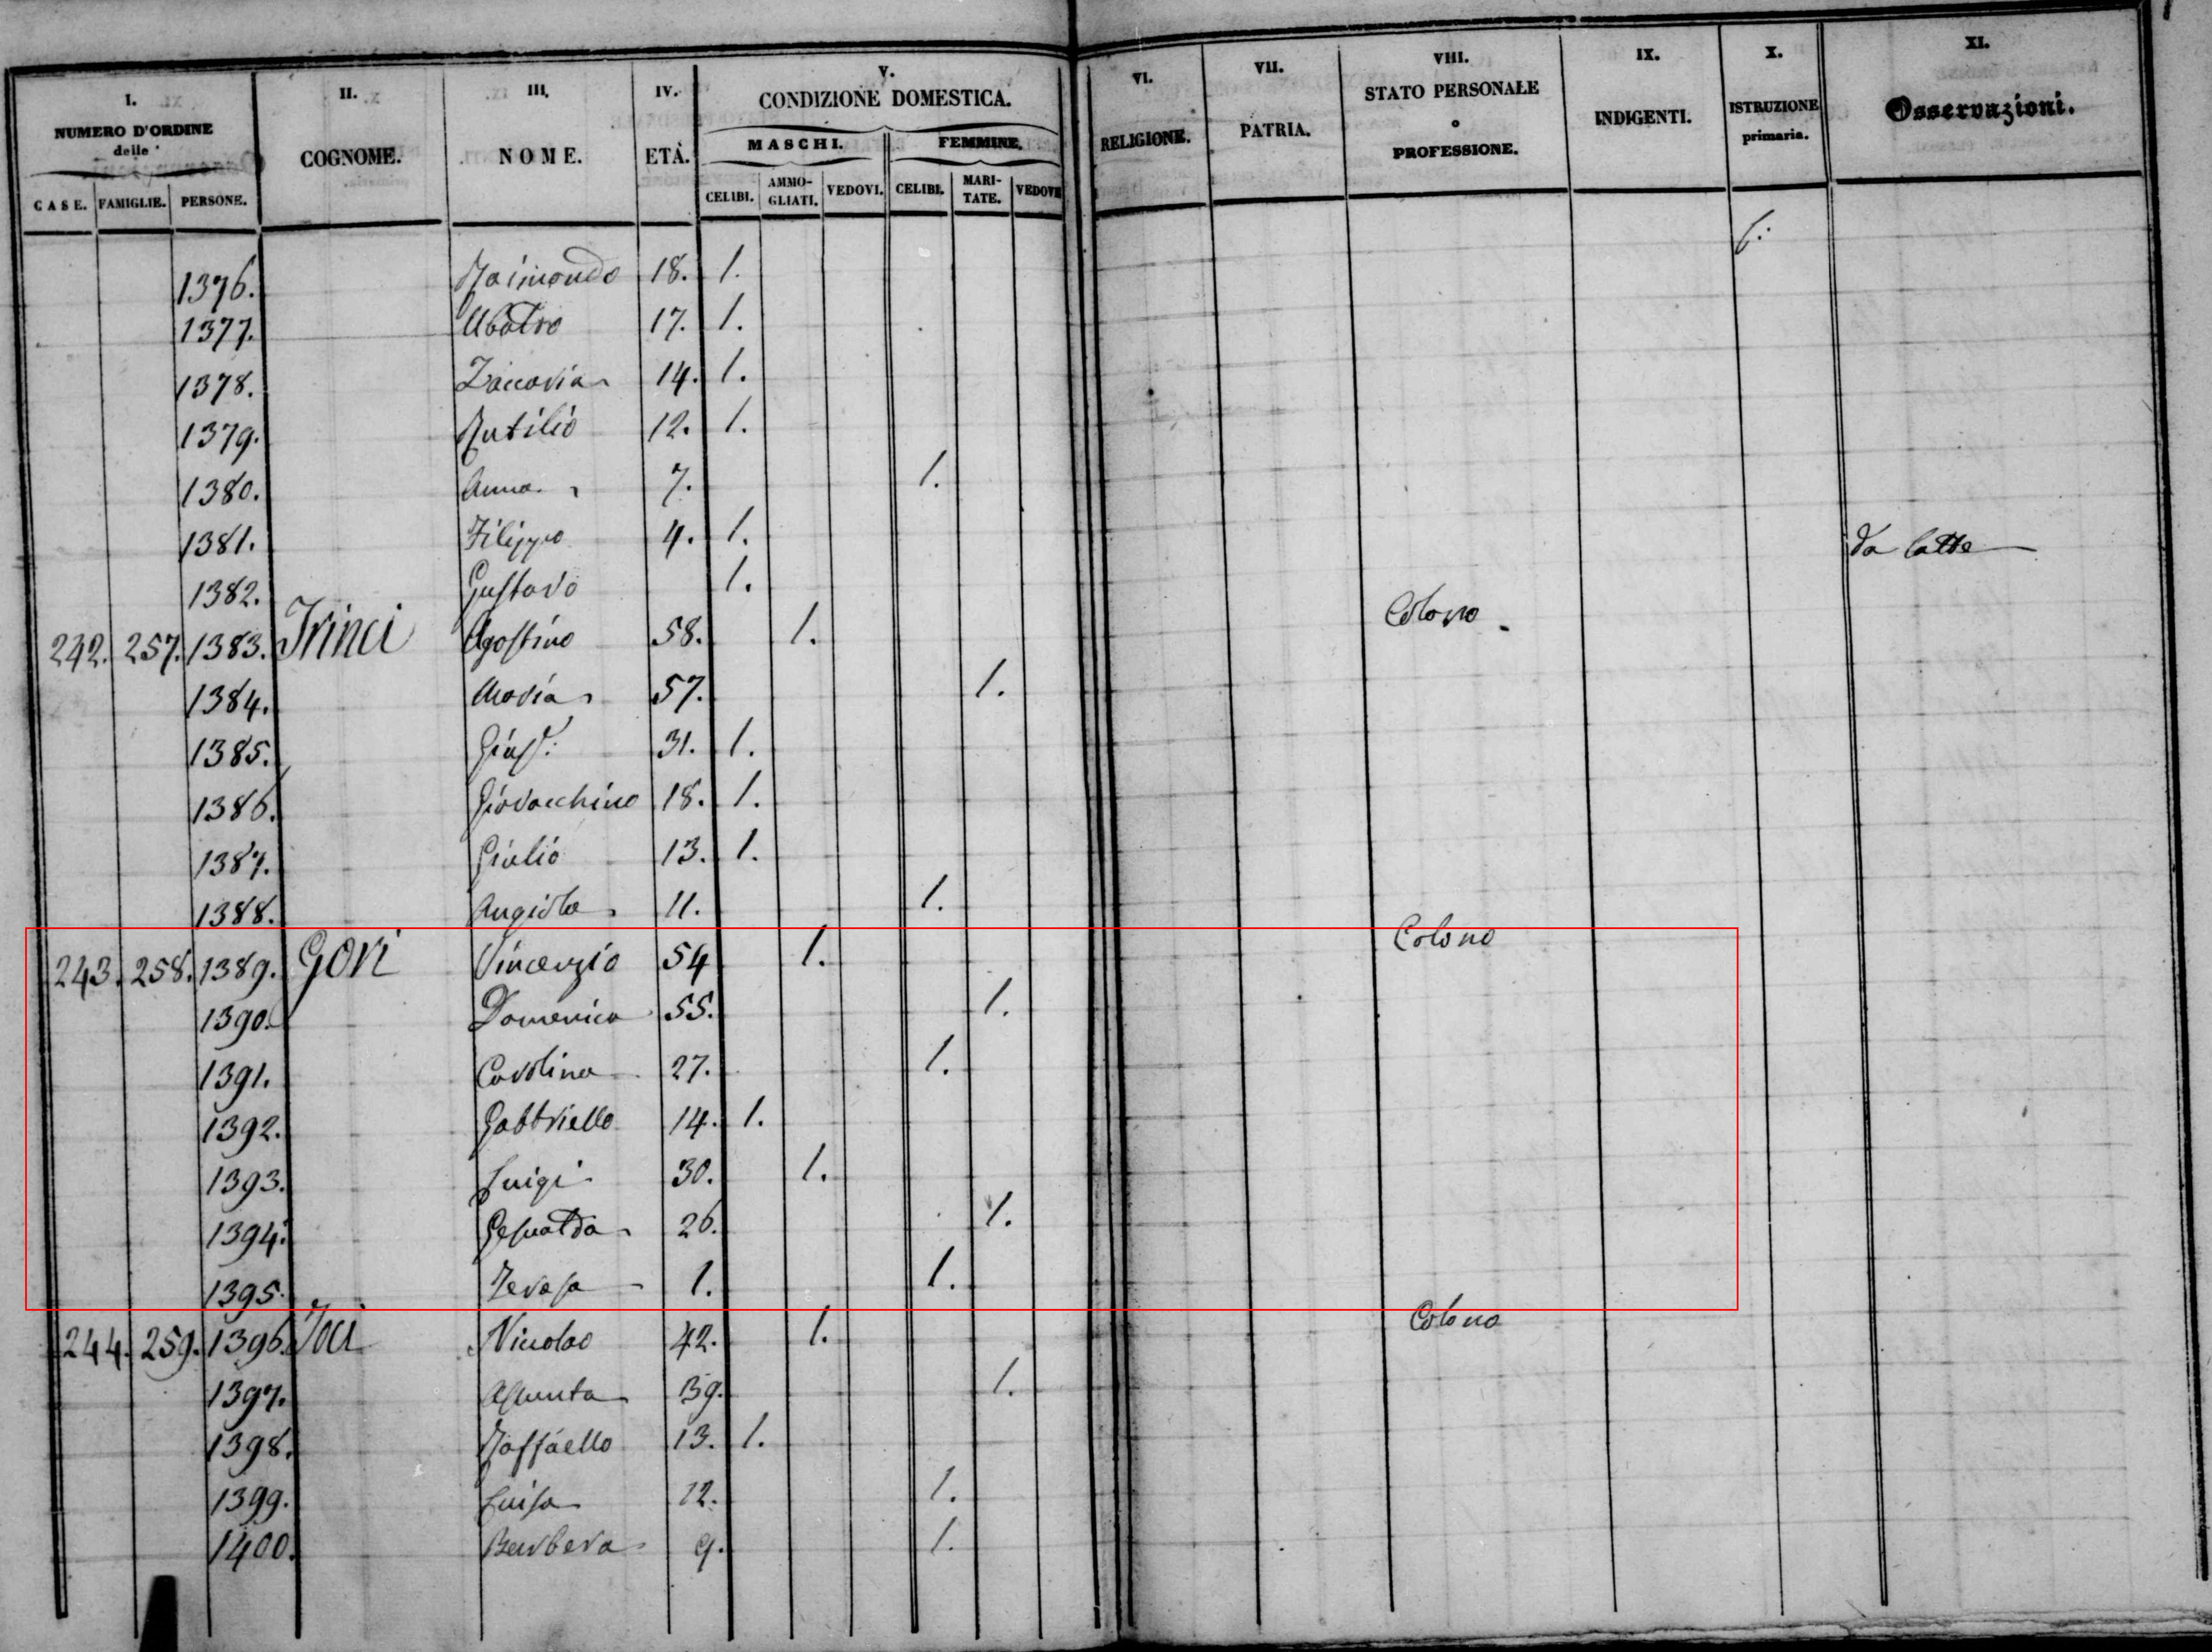 I. II. III. IV. V. VI. VII. VIII. IX. X. XI.
NUMERO D'ORDINE delle COGNOME. NOME. ETÀ. CONDIZIONE DOMESTICA. RELIGIONE. PATRIA. STATO PERSONALE o PROFESSIONE. INDIGENTI. ISTRUZIONE primaria. Osservazioni.
MASCHI. FEMMINE.
CASE. FAMIGLIE. PERSONE. CELIBI. AMMOGLIATI. VEDOVI. CELIBI. MARITATE. VEDOVE
1376. Raimondo 18. 1.
1377. Ubaldo 17. 1.
1378. Zaccaria 14. 1.
1379. Rutilio 12. 1.
1380. Anna 7. 1.
1381. Filippo 4. 1.
1382. Gustavo 1. Da latte
242. 257. 1383. Trinci Agostino 58. 1. Colono
1384. Maria 57. 1.
1385. Gius.: 31. 1.
1386. Giovacchino 18. 1.
1387. Giulio 13. 1.
1388. Angiola 11. 1.
243. 258. 1389. Gori Vincenzio 54 1. Colono
1390. Domenica 55. 1.
1391. Carolina 27. 1.
1392. Gabbriello 14. 1.
1393. Luigi 30. 1.
1394. Gesualda 26. 1.
1395. Teresa 1. 1.
244. 259. 1396. Nicolao 42. 1. Colono
1397. Assunta 39. 1.
1398. Raffaello 13. 1.
1399. Luisa 12. 1.
1400. Barbera 9. 1.